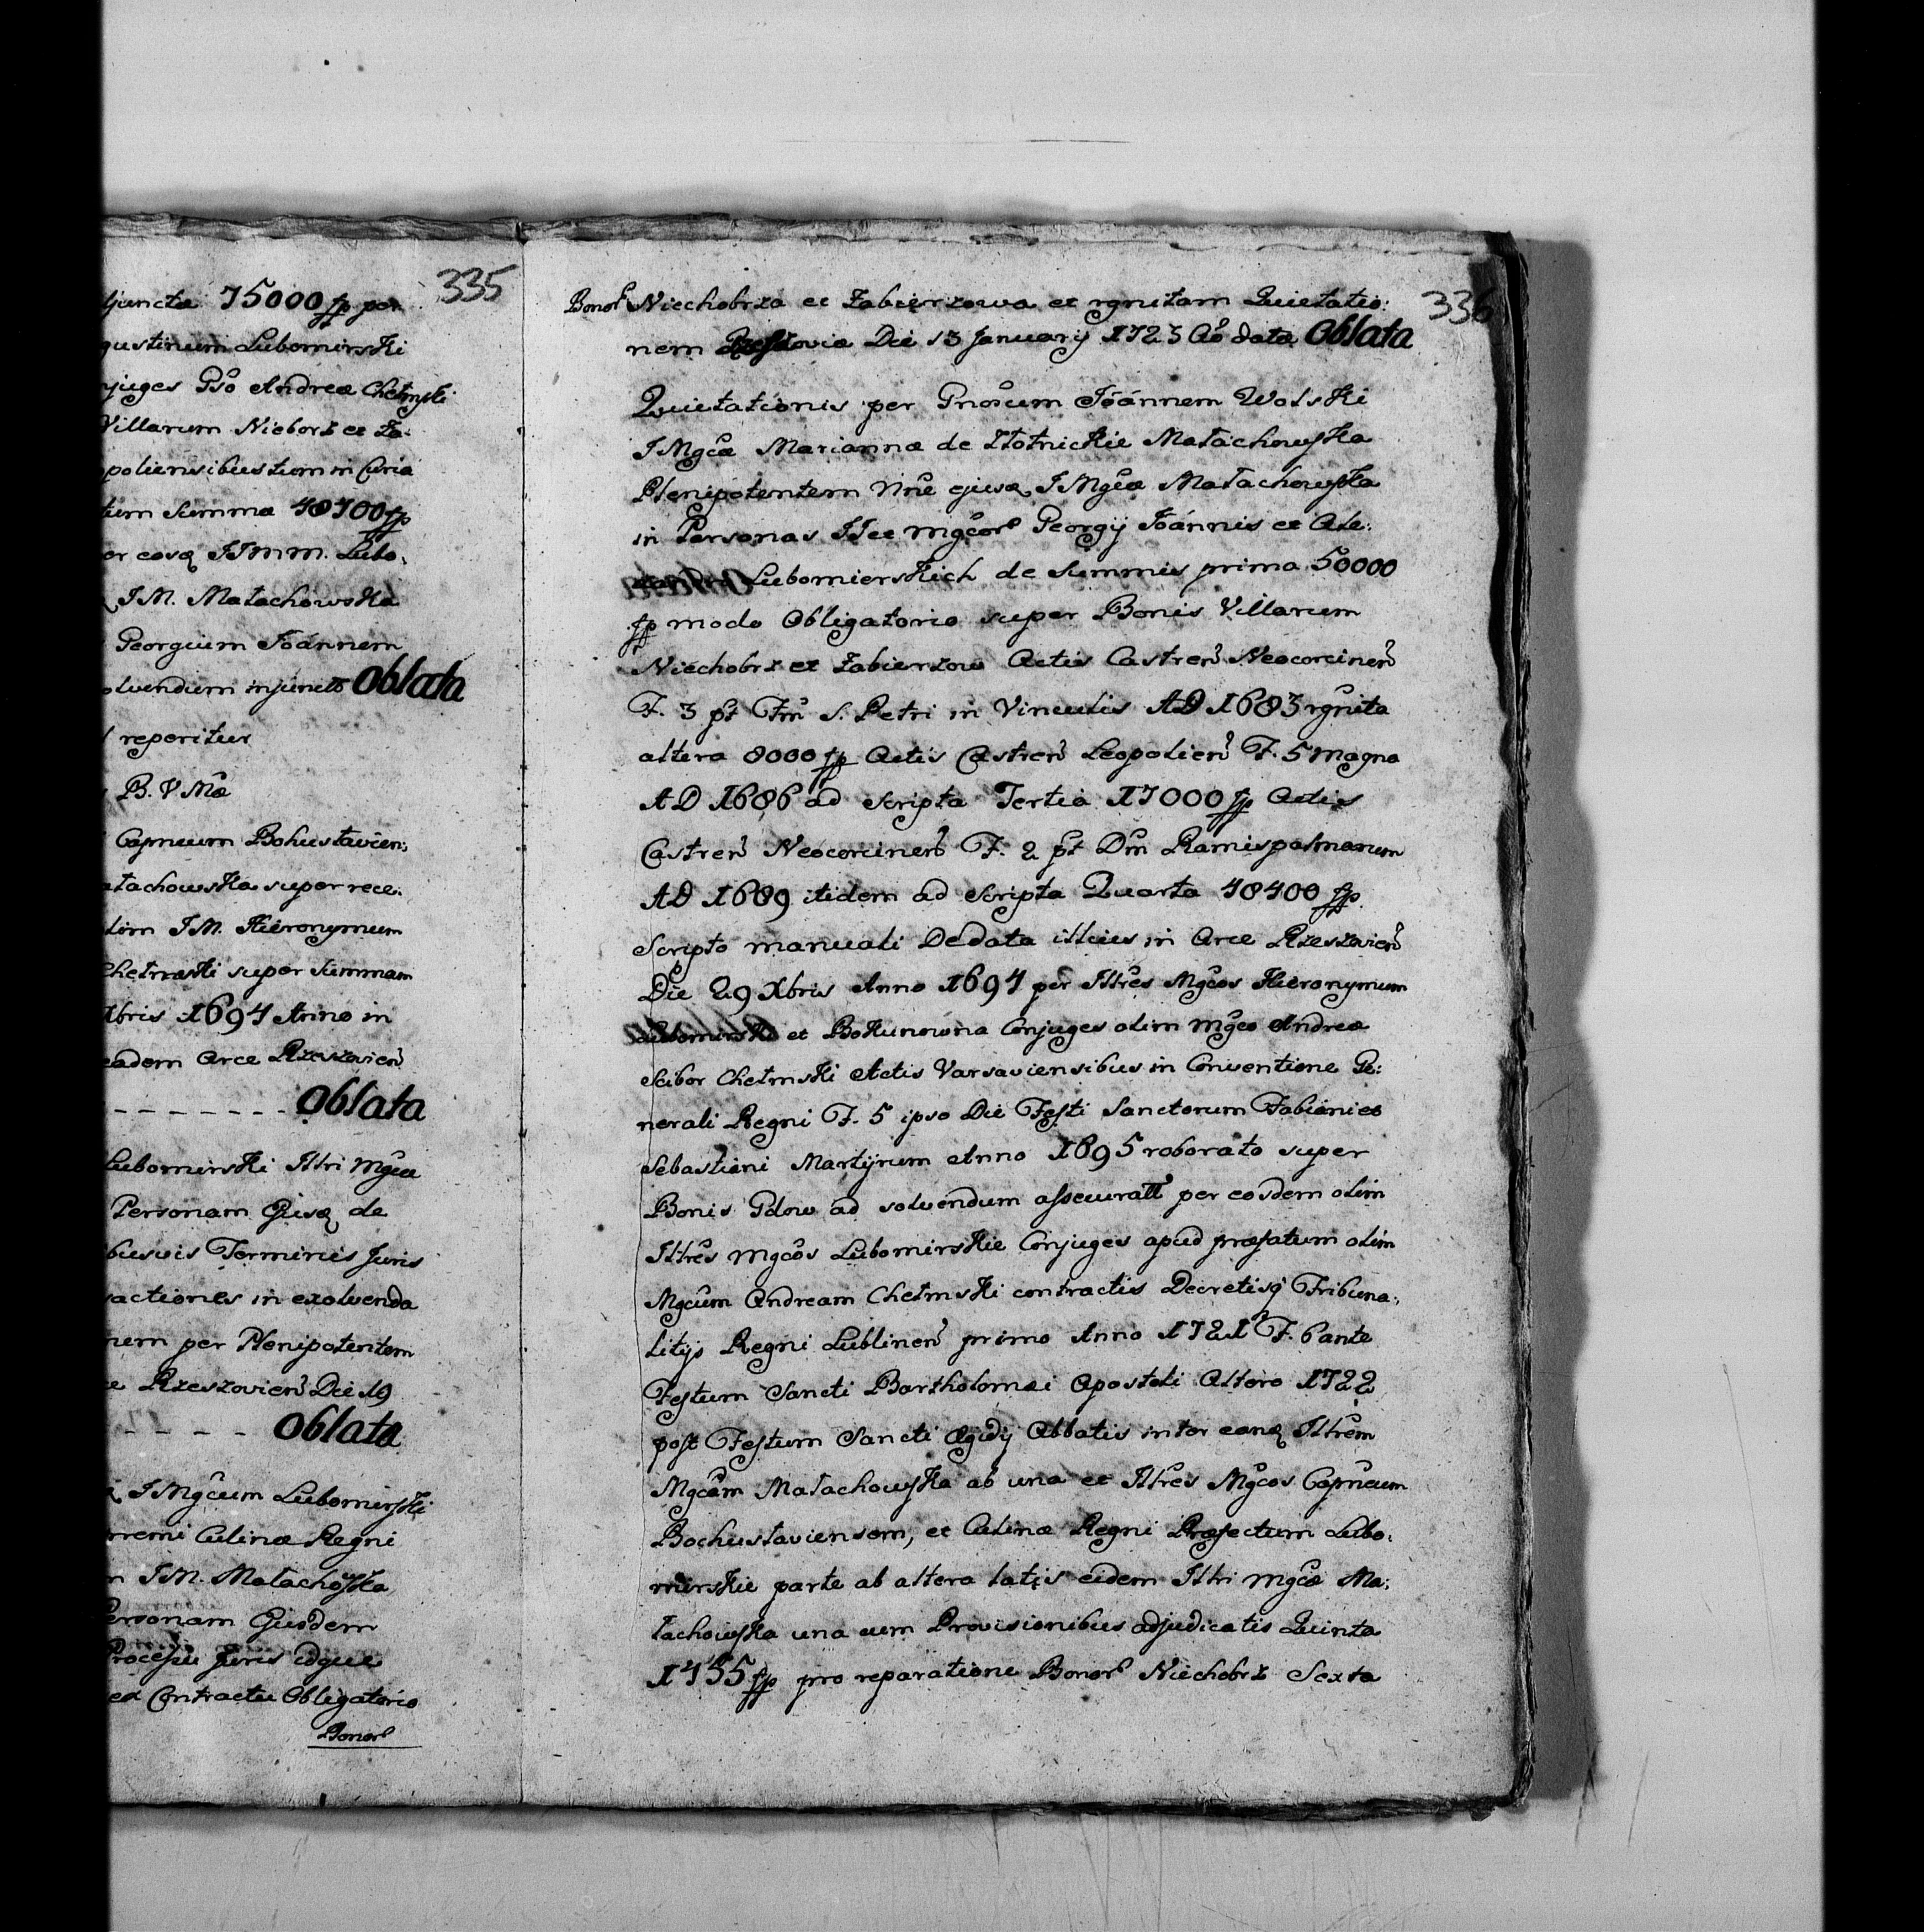 335
juncta 75000 fp per
gustinum Lubomirski
njuges Gso Andreæ Chełmski
Villarum Nieborz et Za:
opoliensibus tum in Curia
tum Summa 48400 fp
or eosq IImm. Lubo,
IM. Małachowska
Georgium Joánnem
olvendum injuncto Oblata
reperitur
B. V Mæ
Capneum Bohusłavien:
łachowska super rece:
olim IM. Hieronymum
Chełmski super Summam
Xbris 1694 Anno in
eadem Arce Rzeszovien
- - - - - - - Oblata
Lubomirski Illri Mgcæ
Personam Ejusq de
busvis Terminis Juris
actiones in exolvenda
nem per Plenipotentem
Rzeszovien Die 19
- - - - Oblata
IMgcum Lubomirski
premi Culinæ Regni
IM. Małachowska
Personam Ejusdem
Processu Juris idque
ex Contractu Obligatorio
Bonor
336
Bonor Niechobrza et Zabierzowa et rgnitam Quietatio:
nem Rzeszoviæ Die 13 Januarij 1723 Ao data Oblata
Quietationis per Gnosum Joánnem Wolski
IMgcæ Mariannæ de Złotnickie Małachowska
Plenipotentem Nne ejusq IMgcæ Małachowska
in Personas IIee mgcor Georgij Joánnis et Ale:
Lubomierskich de Summis prima 50000
fp modo Obligatorio super Bonis Villarum
Niechobrz et Zabierzow Actis Castren Neocorcinen
F. 3 pt Fm S. Petri in Vinculis AD 1683 rgnita
altera 8000 fp Actis Castren Leopolien F. 5 Magna
AD 1686 ad Scripta Tertia 17000 fp Actis
Castren Neocorcinen F. 2 pt Dm Ramispalmarum
AD 1689 itidem ad Scripta Quarta 48400 fp
Scripto manuali Dedata illius in Arce Rzeszovien
Die 29 Xbris Anno 1694 per Illres Mgcos Hieronymum
Lubomirski et Bokunowna Conjuges olim Mgco Andreæ
Scibor Chełmski Actis Varsaviensibus in Conventione Ge:
nerali Regni F. 5 ipso Die Festi Sanctorum Fabiani et
Sebastiani Martyrum Anno 1695 roborato super
Bonis Gdow ad solvendum assecuratt per eosdem olim
Illres Mgcos Lubomirskie Conjuges apud præfatum olim
Mgcum Andream Chełmski contractis Decretisq Tribuna:
litijs Regni Lublinen primo Anno 1721 F. 6 ante
Festum Sancti Bartholomæi Apostoli Altero 1722
post Festum Sancti Ægidij Abbatis inter eanq Illrem
Mgcam Małachowska ab una et Illres Mgcos Capneum
Bochusłaviensem, et Culinæ Regni Præfectum Lubo:
mirskie parte ab altera latis eidem Illri Mgcæ Ma:
łachowska una cum Provisionibus adjudicatis Quinta
1455 fp pro reparatione Bonor Niechobrz Sexta